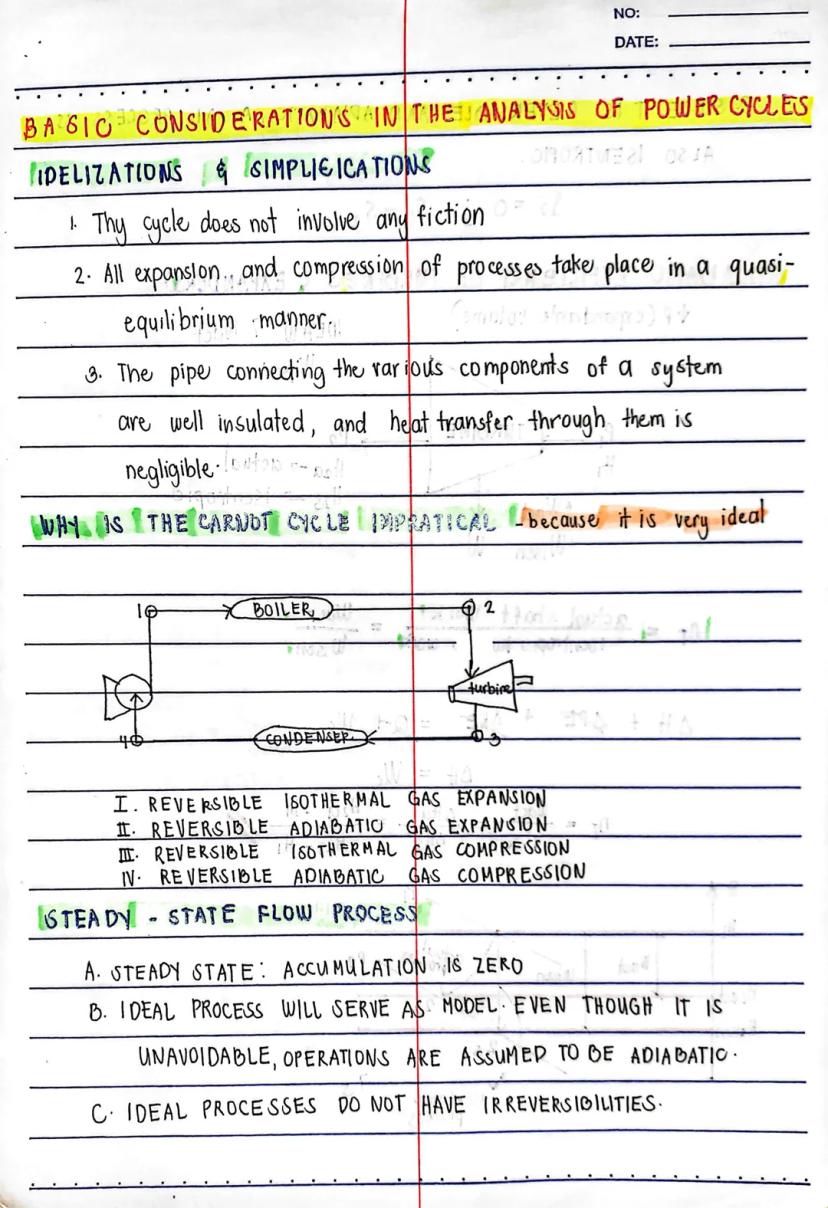 NO:
DATE:
BASIC CONSIDERATIONS IN THE ANALYSIS OF POWER CYCLES
IDELIZATIONS & SIMPLICICATIONS
1. Thy cycle does not involve any fiction
2. All expansion and compression of processes take place in a quasi-
equilibrium manner.
3. The pipe connecting the various components of a system
are well insulated, and heat transfer through them is
negligible.
WHY IS THE CARNOT CYCLE IMPRATICAL - because it is very ideal
1 BOILER 2
turbine
4 CONDENSER 3
I. REVERSIBLE ISOTHERMAL GAS EXPANSION
II. REVERSIBLE ADIABATIC GAS EXPANSION
III. REVERSIBLE ISOTHERMAL GAS COMPRESSION
IV. REVERSIBLE ADIABATIC GAS COMPRESSION
STEADY - STATE FLOW PROCESS
A. STEADY STATE: ACCUMULATION IS ZERO
B. IDEAL PROCESS WILL SERVE AS MODEL. EVEN THOUGH IT IS
UNAVOIDABLE, OPERATIONS ARE ASSUMED TO BE ADIABATIC.
C. IDEAL PROCESSES DO NOT HAVE IRREVERSIBILITIES.